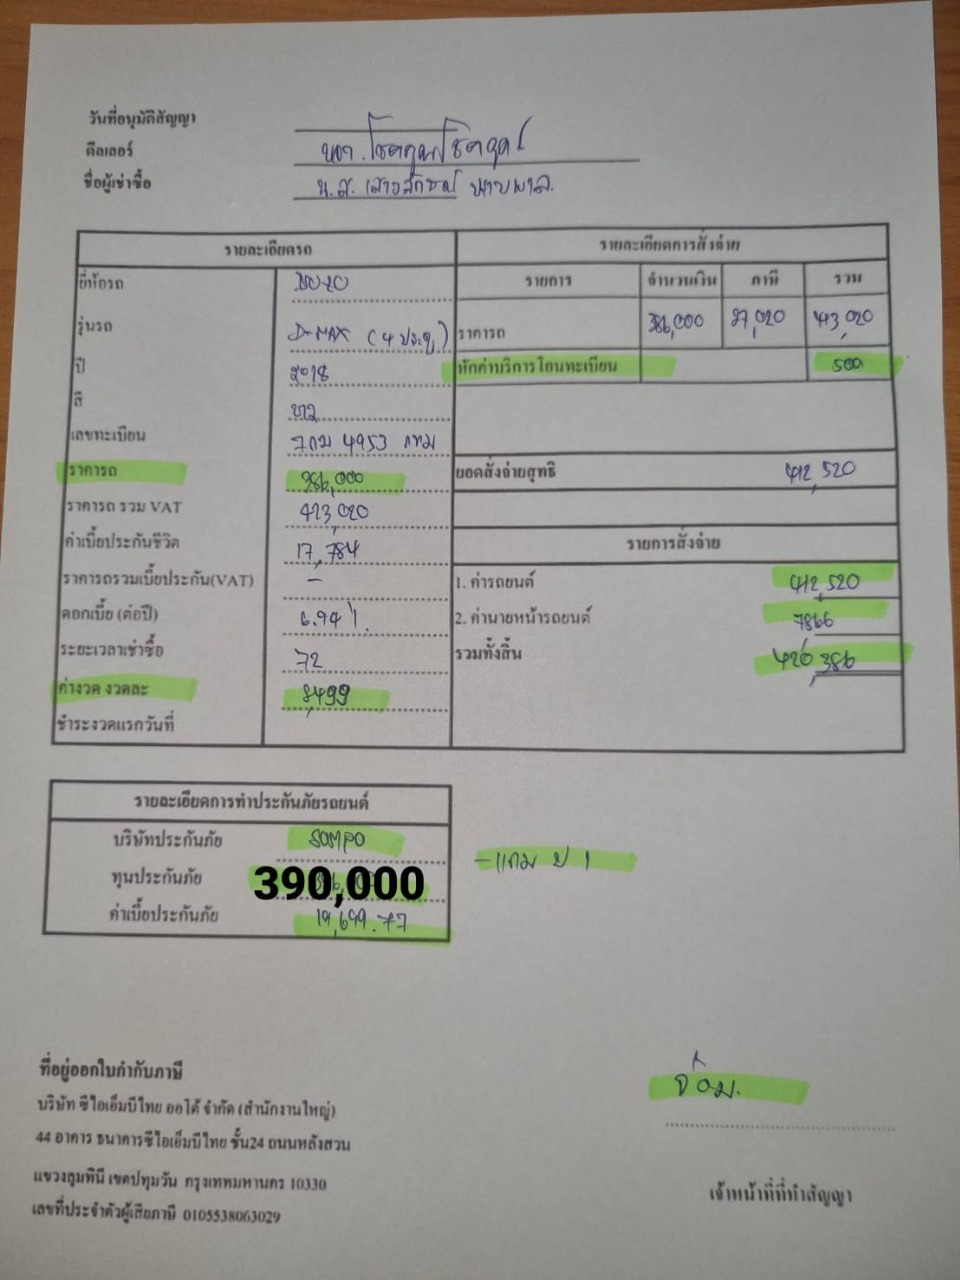 วันที่อนุมัติสัญญา
ดีลเลอร์
ชื่อผู้เช่าซื้อ น.ส.
รายละเอียดรถ
ยี่ห้อรถ
รุ่นรถ D-MAX (4 ประตู)
ปี 2018
สี ขาว
เลขทะเบียน 4953 กทม
ราคารถ 386,000
ราคารถ รวม VAT 413,020
ค่าเบี้ยประกันชีวิต 17,784
ราคารถรวมเบี้ยประกัน(VAT) -
ดอกเบี้ย (ต่อปี) 6.94 %
ระยะเวลาเช่าซื้อ 72
ค่างวด งวดละ 8,499
ชำระงวดแรกวันที่
รายละเอียดการสั่งจ่าย
รายการ จำนวนเงิน ภาษี รวม
ราคารถ 386,000 27,020 413,020
หักค่าบริการโอนทะเบียน 500
ยอดสั่งจ่ายสุทธิ 412,520
รายการสั่งจ่าย
1. ค่ารถยนต์ 412,520
2. ค่านายหน้ารถยนต์ 7866
รวมทั้งสิ้น 420,386
รายละเอียดการทำประกันภัยรถยนต์
บริษัทประกันภัย SOMPO
ทุนประกันภัย 390,000
ค่าเบี้ยประกันภัย 19,699.77
- แถม ป 1
ที่อยู่ออกใบกำกับภาษี
บริษัท ซีไอเอ็มบีไทย ออโต้ จำกัด (สำนักงานใหญ่)
44 อาคาร ธนาคารซีไอเอ็มบีไทย ชั้น24 ถนนหลังสวน
แขวงลุมพินี เขตปทุมวัน กรุงเทพมหานคร 10330
เลขที่ประจำตัวผู้เสียภาษี 0105538063029
เจ้าหน้าที่ที่ทำสัญญา